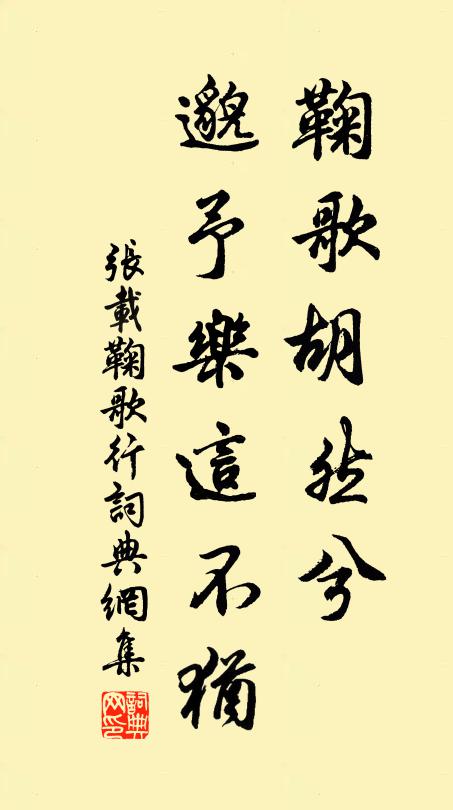 鞠歌胡然兮
邈予樂這不猶
張載鞠歌行詞典網集
詞典网印